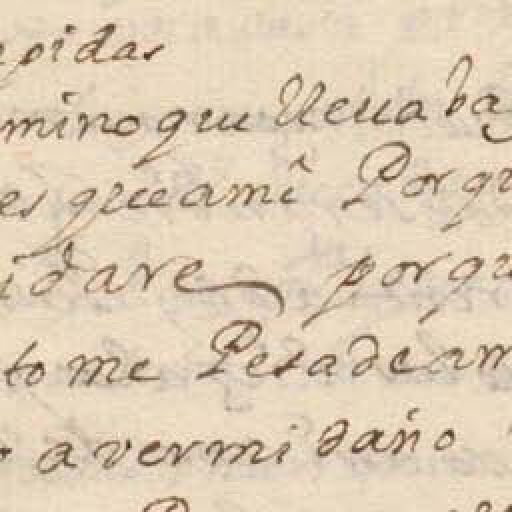 pidas
mino que lleua ba
es que ami Porqu
idare porqu
to me Pesa de am
a ver mi daño